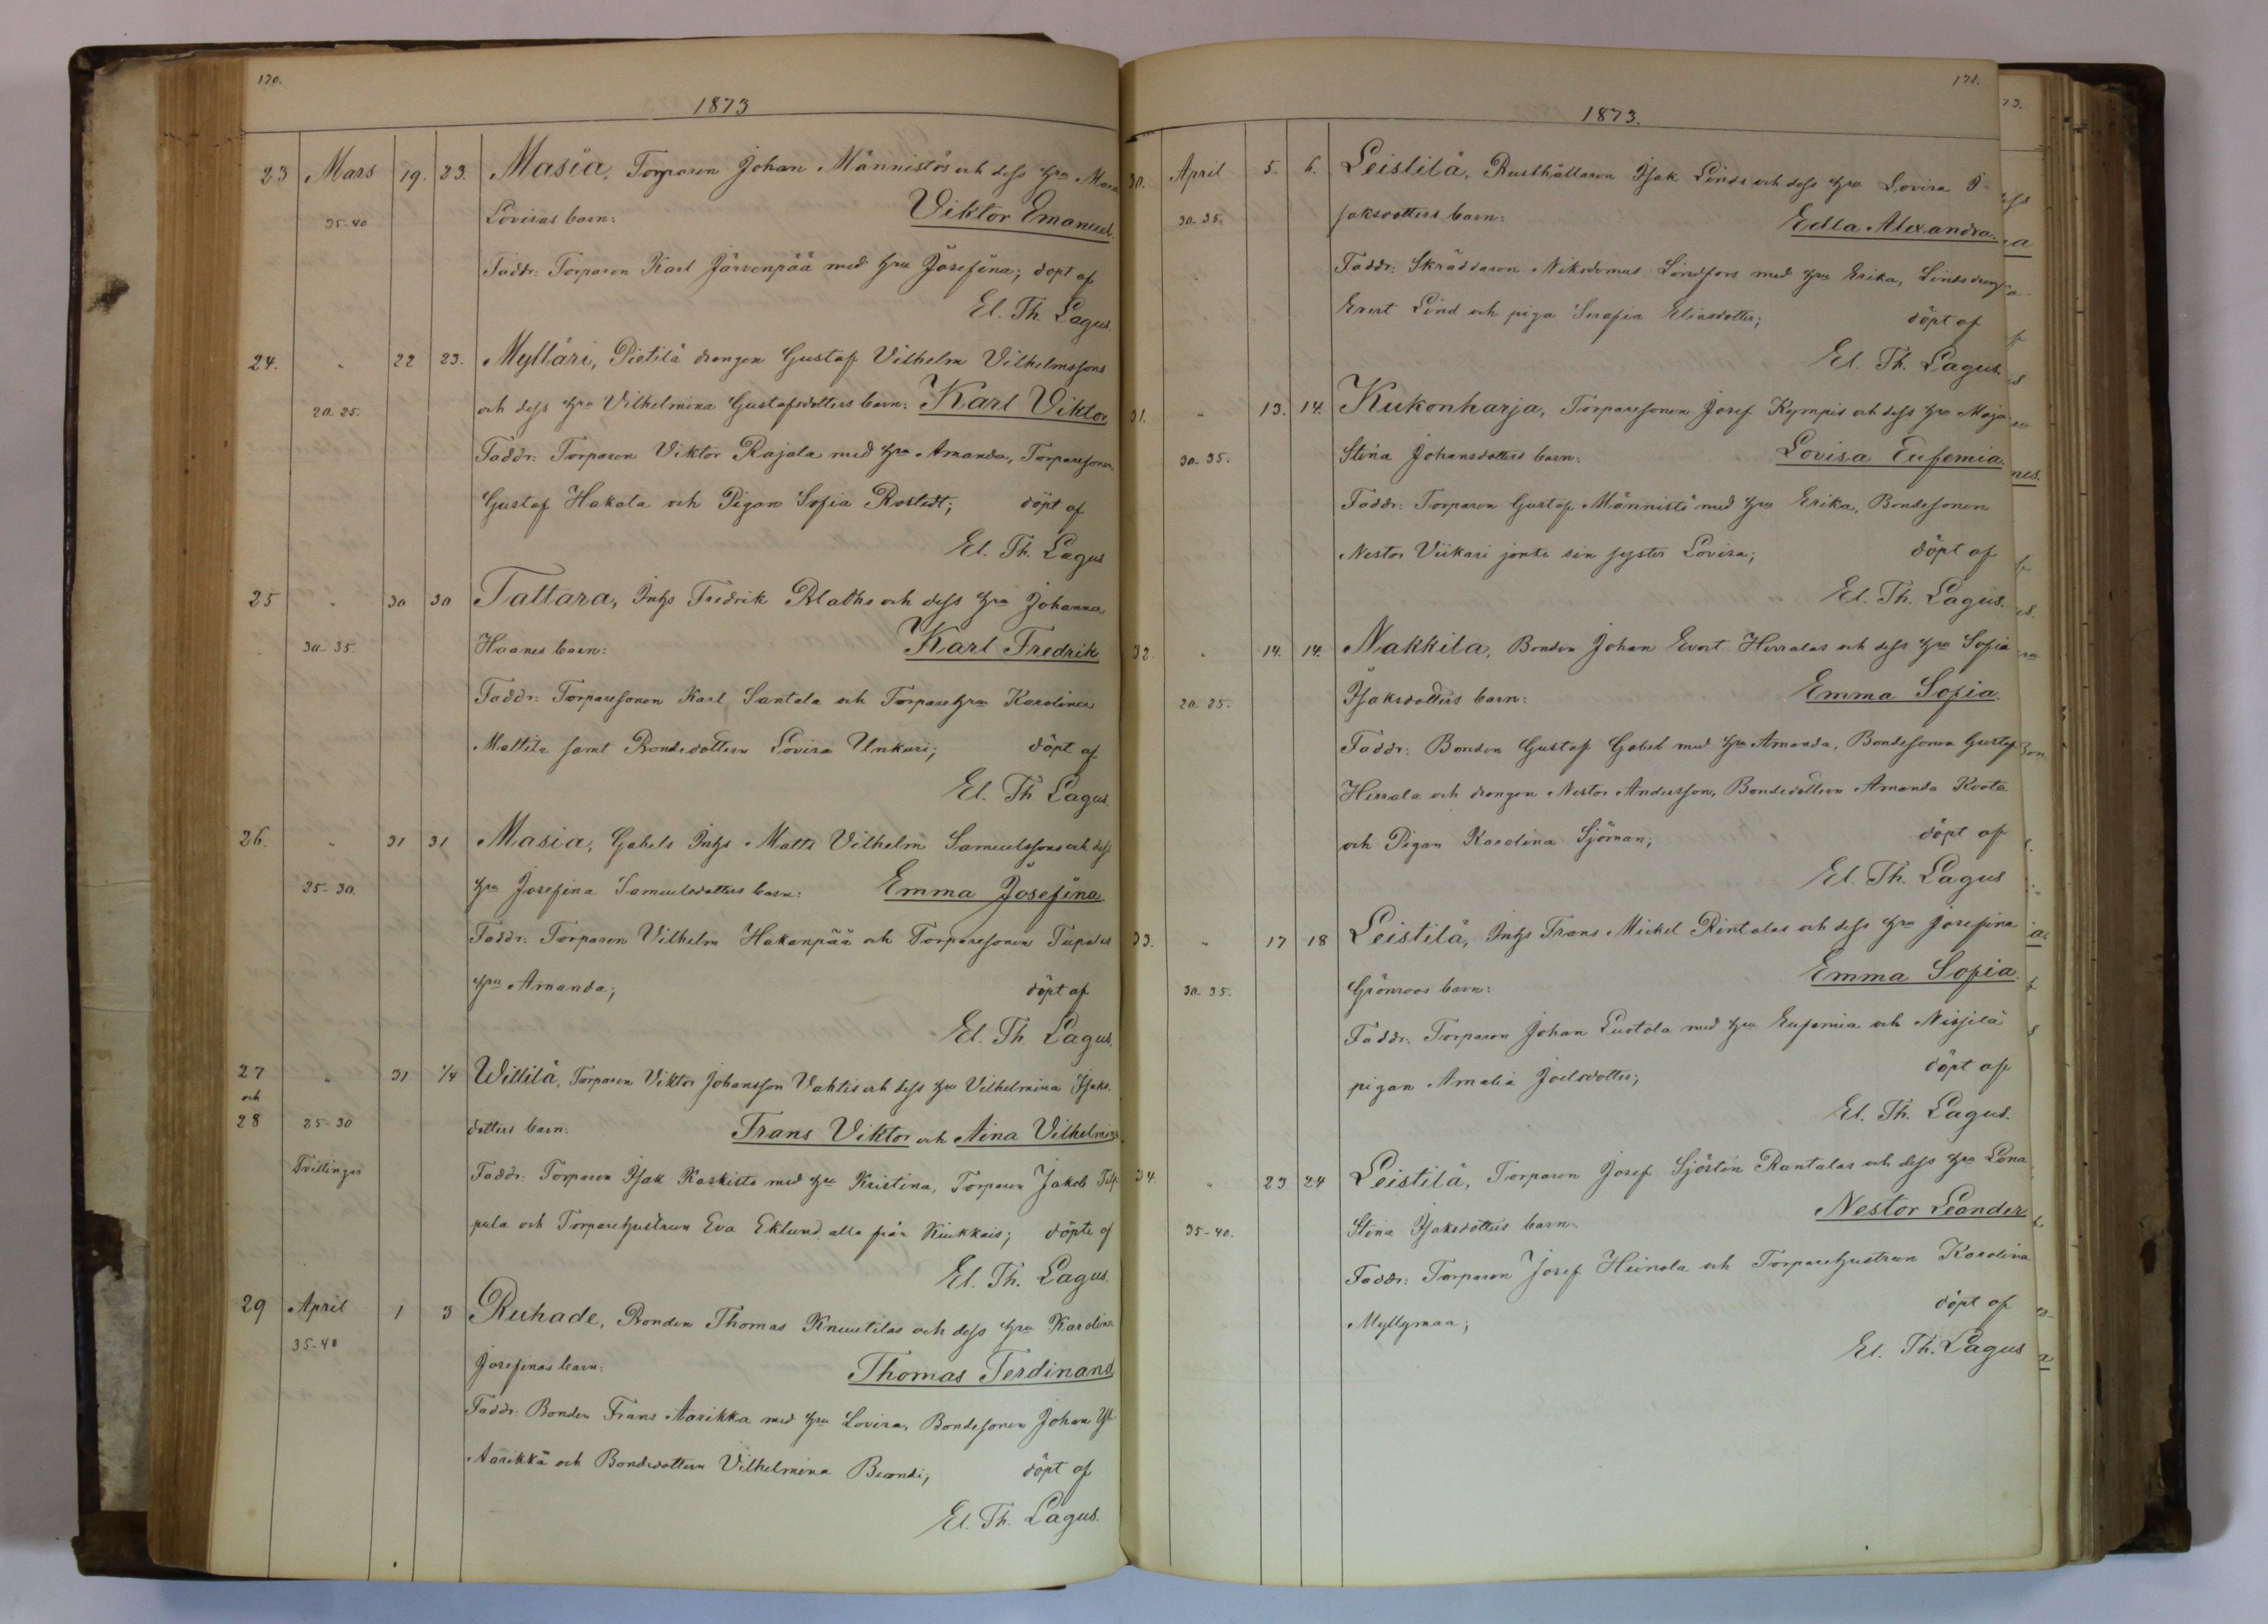 170.
1873
23 Mars 19. 23. Masia, Torparen Johan Männistös och dess hru Maria
35-40 Lovisas barn: Viktor Emanuel.
Faddr: Torparen Karl Järvenpää med hru Josefina; döpt af
El. Th. Lagus.
24. " 22 23. Mylläri, Pietilä drängen Gustaf Vilhelm Vilhelmssons
20-25. och dess hru Vilhelmina Gustafsdotters barn: Karl Viktor
Faddr: Torparen Viktor Rajala med hru Amanda, Torparesonen
Gustaf Hakala och Pigan Sofia Rostedt; döpt af
El. Th. Lagus
25 " 30 30 Tattara, Inhs Fredrik Blaths och dess hru Johanna
30-35. Haanes barn: Karl Fredrik
Faddr: Torparesonen Karl Santala och Torparehru Karolina
Mattila samt Bondedottern Lovisa Unkuri; döpt af
El. Th Lagus.
26. " 31 31 Masia, Gabels Inhs Matts Vilhelm Samuelssons och dess
25-30. hru Josefina Samuelsdotters barn: Emma Josefina.
Faddr: Torparen Vilhelm Hakanpää och Torparesonen Tupalas
hru Amanda; döpt af
El. Th. Lagus.
27 " 31 1/4 Willilä, Torparen Viktor Johansson Vahtis och dess hru Vilhelmina Isaks-
och
28 25-30 dotters barn: Frans Viktor och Aina Vilhelmina
Tvillingar Faddr: Torparen Isak Kaskisto med hru Kristina, Torparen Jakob
pula och Torparehustrun Eva Eklund, alla från Kiukkais; döpte af
El. Th. Lagus.
29 April 1 3 Ruhade, Bonden Thomas Knuutilas och dess hru Karolina
35-40 Josefinas barn: Thomas Ferdinand
Faddr: Bonden Frans Aarikka med hru Lovisa, Bondesonen Johan Yli-
Aarikka och Bondedottern Vilhelmina Beandi; döpt af
El. Th. Lagus.
171.
1873.
30. April 5. 6. Leistilä, Rusthållaren Isak Linds och dess hru Lovisa I-
30-35. saksdotters barn: Edla Alexandra.
Faddr: Skräddaren Nikodemus Lindfors med hru Erika, Linds dräng
Evert Lind och piga Serafia Eliasdotter; döpt af
El. Th. Lagus.
31. " 13. 14. Kukonharja, Torparesonen Josef Kympis och dess hru Maja
30-35. Stina Johansdotters barn: Lovisa Eufemia.
Faddr: Torparen Gustaf Männistö med hru Erika, Bondesonen
Nestor Viikari jemte sin syster Lovisa; döpt af
El. Th. Lagus.
32. " 14. 14. Nakkila, Bonden Johan Evert Herralas och dess hru Sofia
20-25. Isaksdotters barn: Emma Sofia.
Faddr: Bonden Gustaf Gabel med hru Amanda, Bondesonen Gustaf
Herrala och drengen Nestor Andersson, Bondedottern Amanda Koota
och Pigan Karolina Sjöman; döpt af
El. Th. Lagus
33. " 17 18 Leistilä, Inhs Frans Mickel Rintalas och dess hru Josefina
30-35. Grönroos barn: Emma Sofia.
Faddr: Torparen Johan Luotola med hru Eufemia och Nisjilä
pigan Amalia Joelsdotter; döpt af
El. Th. Lagus.
34. " 23 24 Leistilä, Torparen Josef Sjöstén Rantalas och dess hru Lena
35-40. Stina Isaksdotters barn: Nestor Leander
Faddr: Torparen Josef Heinola och Torparehustrun Karolina
Myllymaa; döpt af
El. Th. Lagus